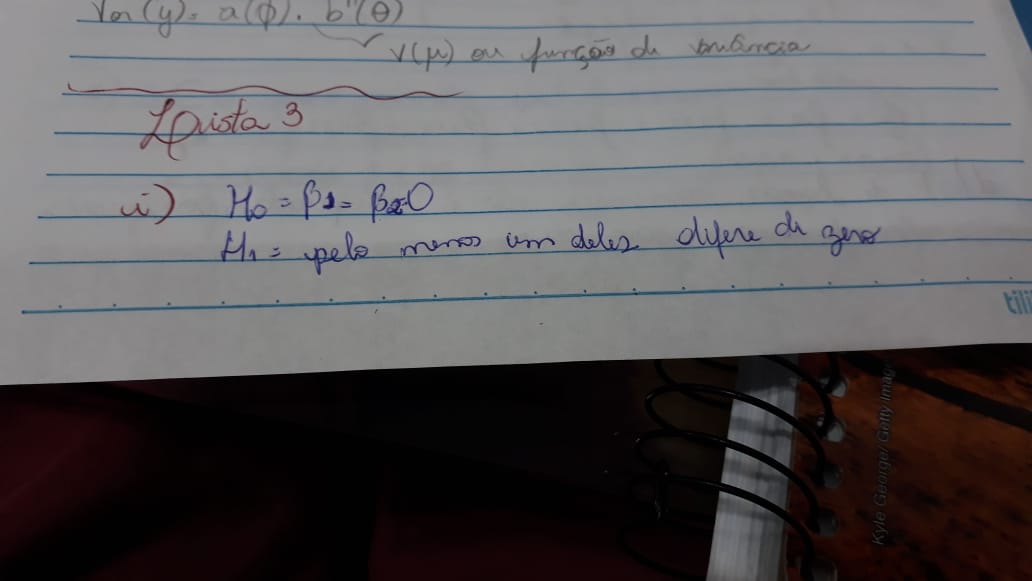 Var(y)= a(ϕ). b"(θ)
V(μ) ou função de variância
Lista 3
i) H₀ = β1 = β2=0
H₁ = pelo menos um deles difere de zero
tili
Kyle George/Getty Imag